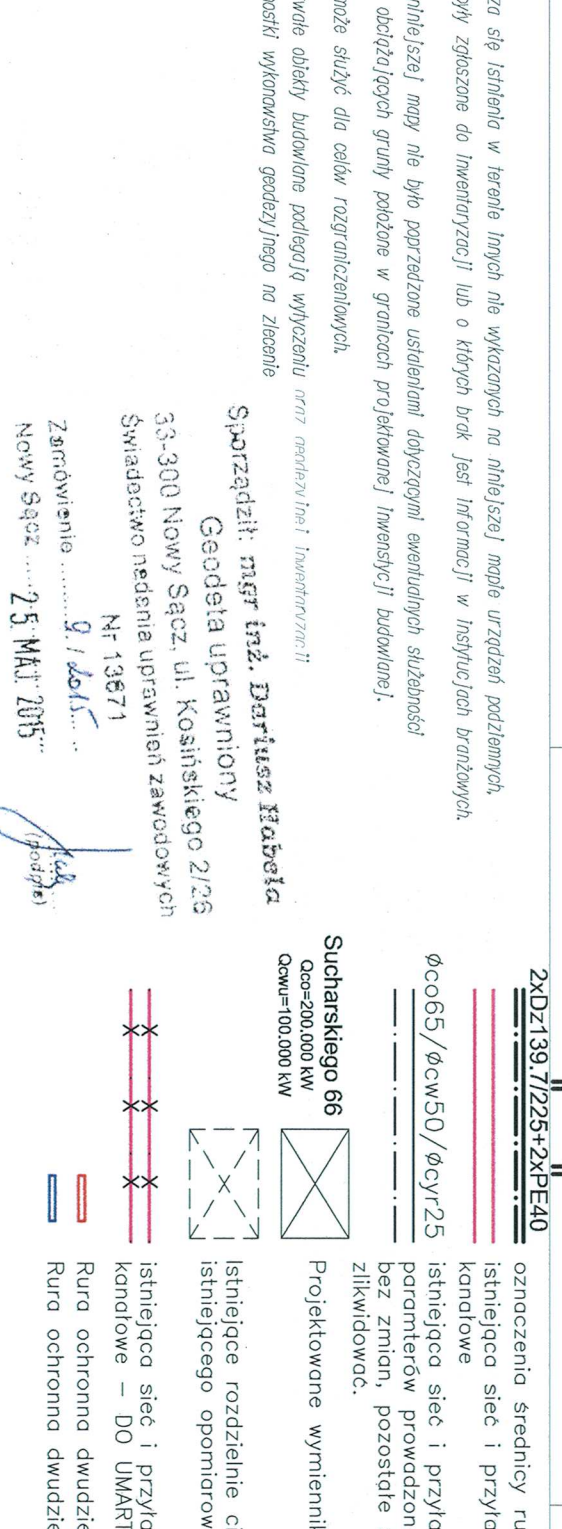 za się istnienia w terenie innych nie wykazanych na niniejszej mapie urządzeń podziemnych,
były zgłoszone do inwentaryzacji lub o których brak jest informacji w instytucjach branżowych.
niniejszej mapy nie było poprzedzone ustaleniami dotyczącymi ewentualnych służebności
obciążających grunty położone w granicach projektowanej inwenstycji budowlanej.
może służyć dla celów rozgraniczeniowych.
wałe obiekty budowlane podlegają wytyczeniu oraz geodezyjnej inwentaryzacji
nostki wykonawstwa geodezyjnego na zlecenie
Sporządził: mgr inż. Dariusz Habela
Geodeta uprawniony
33-300 Nowy Sącz, ul. Kosińskiego 2/26
Świadectwo nadania uprawnień zawodowych
Nr 13871
Zamówienie ......... 9. / 2015 .....
Nowy Sącz ..... 25. MAJ. 2015...
(podpis)
2xDz139.7/225+2xPE40
oznaczenia średnicy ru
istniejąca sieć i przyłą
kanałowe
φco65/φcw50/φcyr25
istniejąca sieć i przyłą
paramterów prowadzon
bez zmian, pozostałe
zlikwidować.
Sucharskiego 66
Qco=200.000 kW
Qcwu=100.000 kW
Projektowane wymiennik
Istniejące rozdzielnie ci
istniejącego opomiarow
istniejąca sieć i przyłą
kanałowe – DO UMART
Rura ochronna dwudzie
Rura ochronna dwudzie